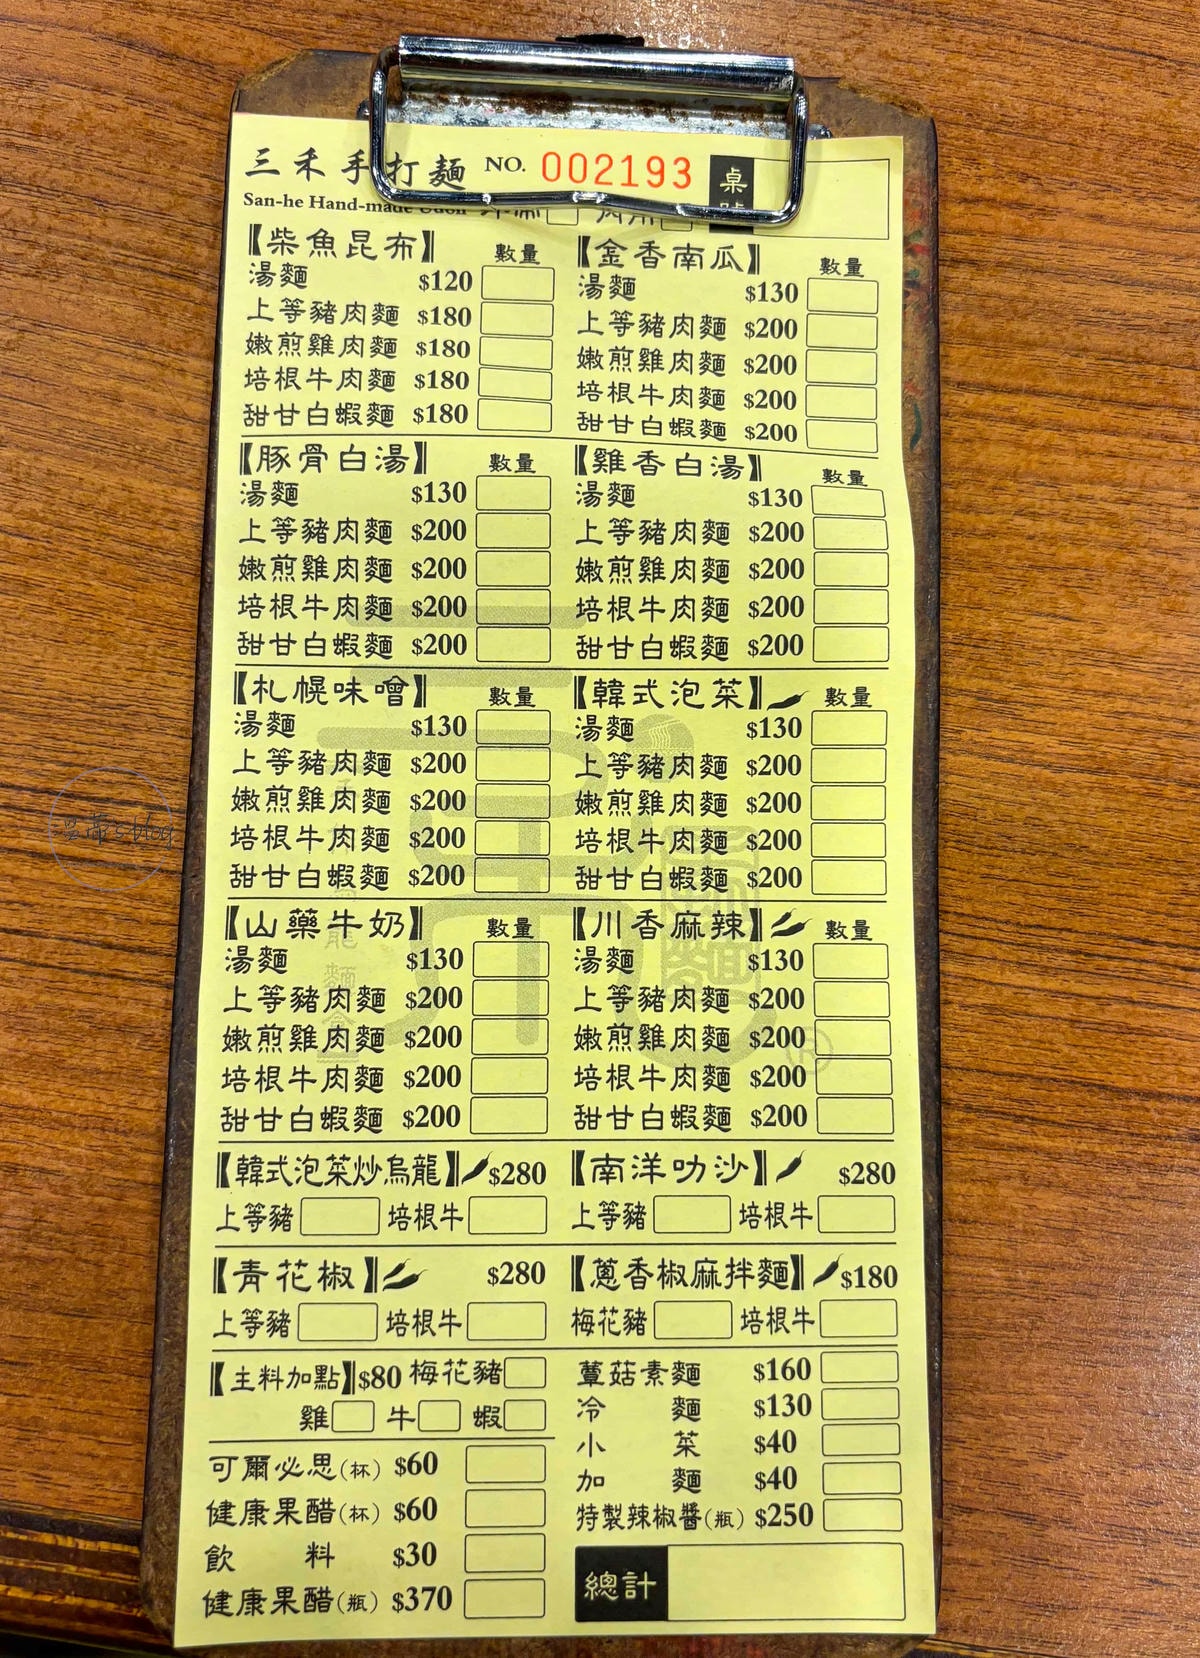 三禾手打麵 NO. 002193 桌號
San-he Hand-made Udon 外帶 內用
【柴魚昆布】 數量
湯麵 $120
上等豬肉麵 $180
嫩煎雞肉麵 $180
培根牛肉麵 $180
甜甘白蝦麵 $180
【金香南瓜】 數量
湯麵 $130
上等豬肉麵 $200
嫩煎雞肉麵 $200
培根牛肉麵 $200
甜甘白蝦麵 $200
【豚骨白湯】 數量
湯麵 $130
上等豬肉麵 $200
嫩煎雞肉麵 $200
培根牛肉麵 $200
甜甘白蝦麵 $200
【雞香白湯】 數量
湯麵 $130
上等豬肉麵 $200
嫩煎雞肉麵 $200
培根牛肉麵 $200
甜甘白蝦麵 $200
【札幌味噌】 數量
湯麵 $130
上等豬肉麵 $200
嫩煎雞肉麵 $200
培根牛肉麵 $200
甜甘白蝦麵 $200
【韓式泡菜】 數量
湯麵 $130
上等豬肉麵 $200
嫩煎雞肉麵 $200
培根牛肉麵 $200
甜甘白蝦麵 $200
【山藥牛奶】 數量
湯麵 $130
上等豬肉麵 $200
嫩煎雞肉麵 $200
培根牛肉麵 $200
甜甘白蝦麵 $200
【川香麻辣】 數量
湯麵 $130
上等豬肉麵 $200
嫩煎雞肉麵 $200
培根牛肉麵 $200
甜甘白蝦麵 $200
【韓式泡菜炒烏龍】 $280
上等豬 培根牛
【南洋叻沙】 $280
上等豬 培根牛
【青花椒】 $280
上等豬 培根牛
【蔥香椒麻拌麵】 $180
梅花豬 培根牛
【主料加點】 $80 梅花豬
雞 牛 蝦
可爾必思(杯) $60
健康果醋(杯) $60
飲料 $30
健康果醋(瓶) $370
蕈菇素麵 $160
冷麵 $130
小菜 $40
加麵 $40
特製辣椒醬(瓶) $250
總計